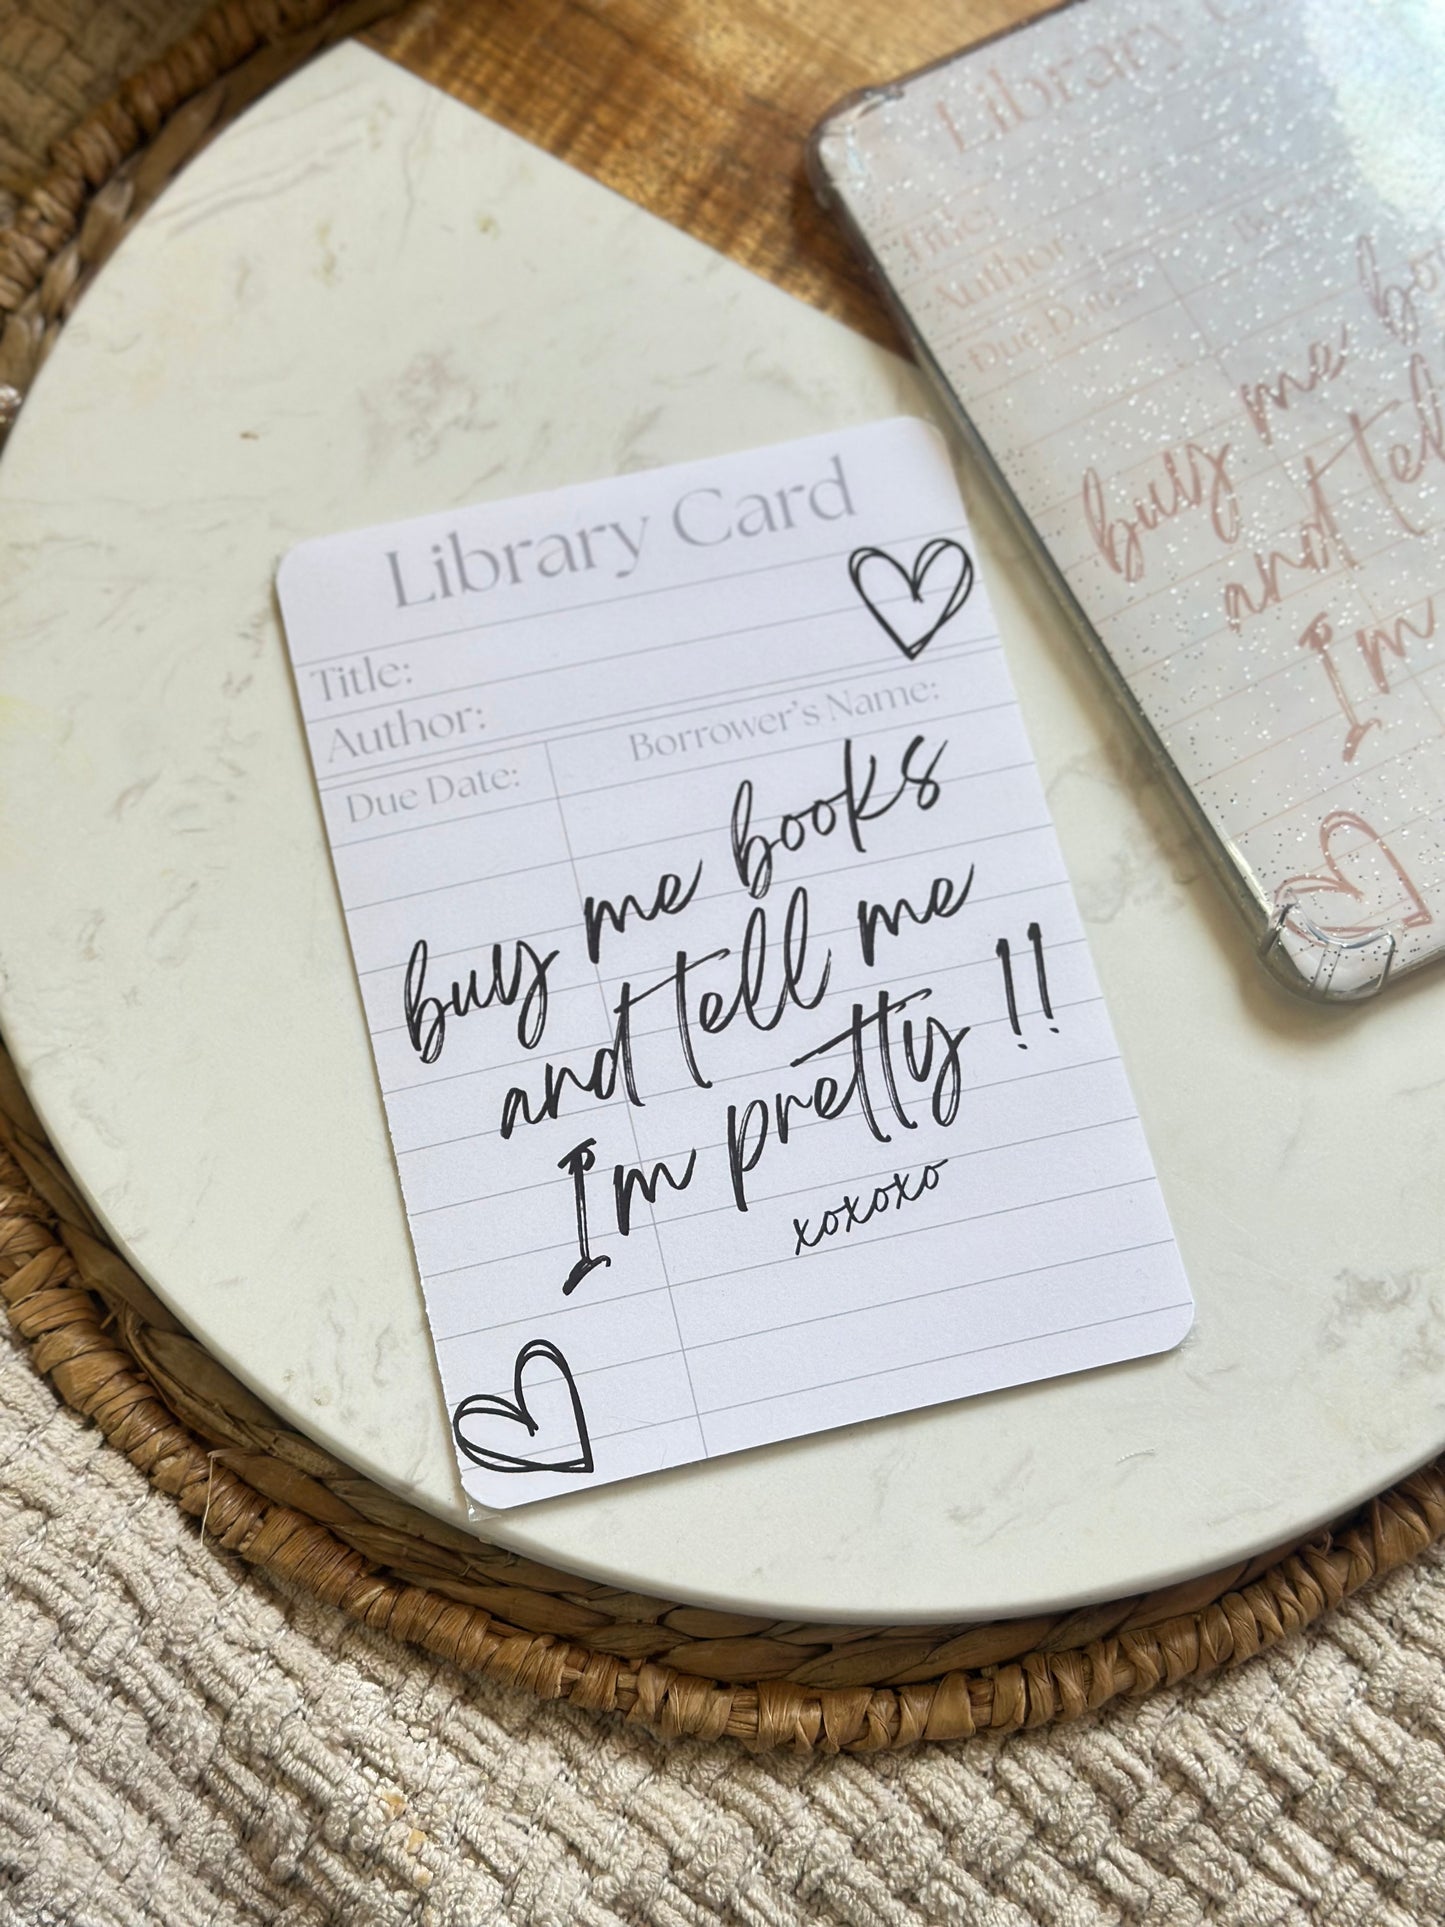 Library Card
Title:
Author:
Due Date:
Borrower's Name:
buy me books
and tell me
I'm pretty !!
xoxoxo
Library
Title:
Author:
Due Date:
buy me
and tell
I'm